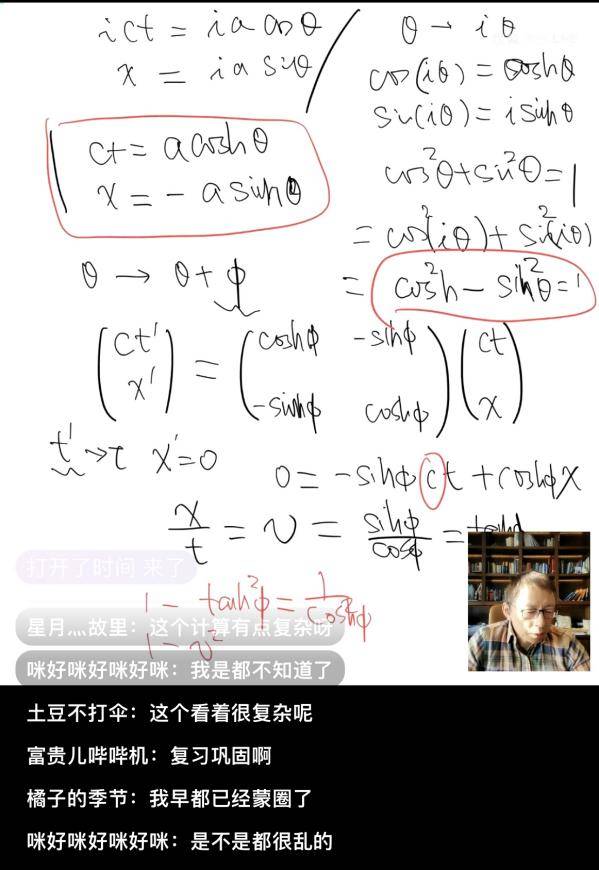 ict = ia cosθ
x = ia sinθ
θ → iθ
cos(iθ) = coshθ
sin(iθ) = i sinhθ
ct = a coshθ
x = - a sinhθ
cos²θ + sin²θ = 1
= cos²(iθ) + sin²(iθ)
θ → θ + φ
= cos²h - sinh²θ = 1
(ct' x') = (coshφ -sinhφ -sinhφ coshφ) (ct x)
t' → τ x' = 0
0 = -sinhφ ct + coshφ x
x/t = v = sinhφ/cosφ =
1 - tanh²φ = 1/cosh²φ
1 - v²
打开了时间 来了
星月灬故里：这个计算有点复杂呀
咪好咪好咪好咪：我是都不知道了
土豆不打伞：这个看着很复杂呢
富贵儿哔哔机：复习巩固啊
橘子的季节：我早都已经蒙圈了
咪好咪好咪好咪：是不是都很乱的